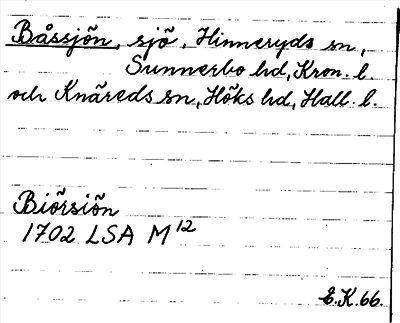 Båssjön, sjö, Hinneryds sn,
Sunnerbo hd, Kron. l.
och Knäreds sn, Höks hd, Hall. l.
Biörsiön
1702 LSA M 12
E.K.66.